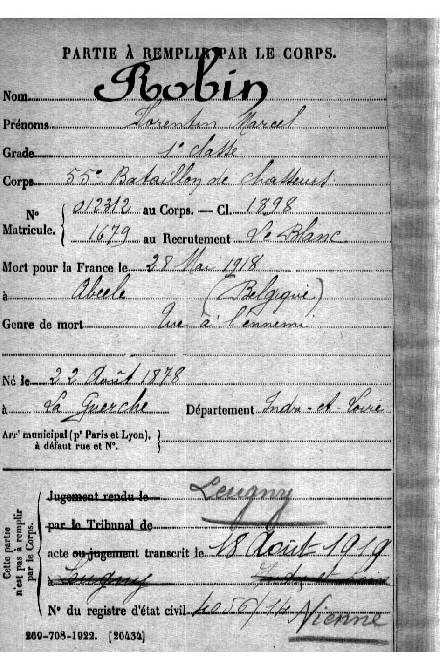 PARTIE À REMPLIR PAR LE CORPS.
Nom Robin
Prénoms Florentin Marcel
Grade 1e classe
Corps 55e Bataillon de Chasseurs
No Matricule. { 012312 au Corps. — Cl. 1898
1679 au Recrutement Le Blanc
Mort pour la France le 28 Mai 1918
à Abeele (Belgique)
Genre de mort Tué à l'ennemi
Né le 22 Août 1878
à La Guerche Département Indre-et-Loire
Arrt municipal (pr Paris et Lyon), à défaut rue et No. }
Cette partie n'est pas à remplir par le Corps.
Jugement rendu le Leugny
par le Tribunal de
acte ou jugement transcrit le 18 Août 1919
à Leugny Indre et Loire
No du registre d'état civil
Vienne
269-708-1922. (26434)